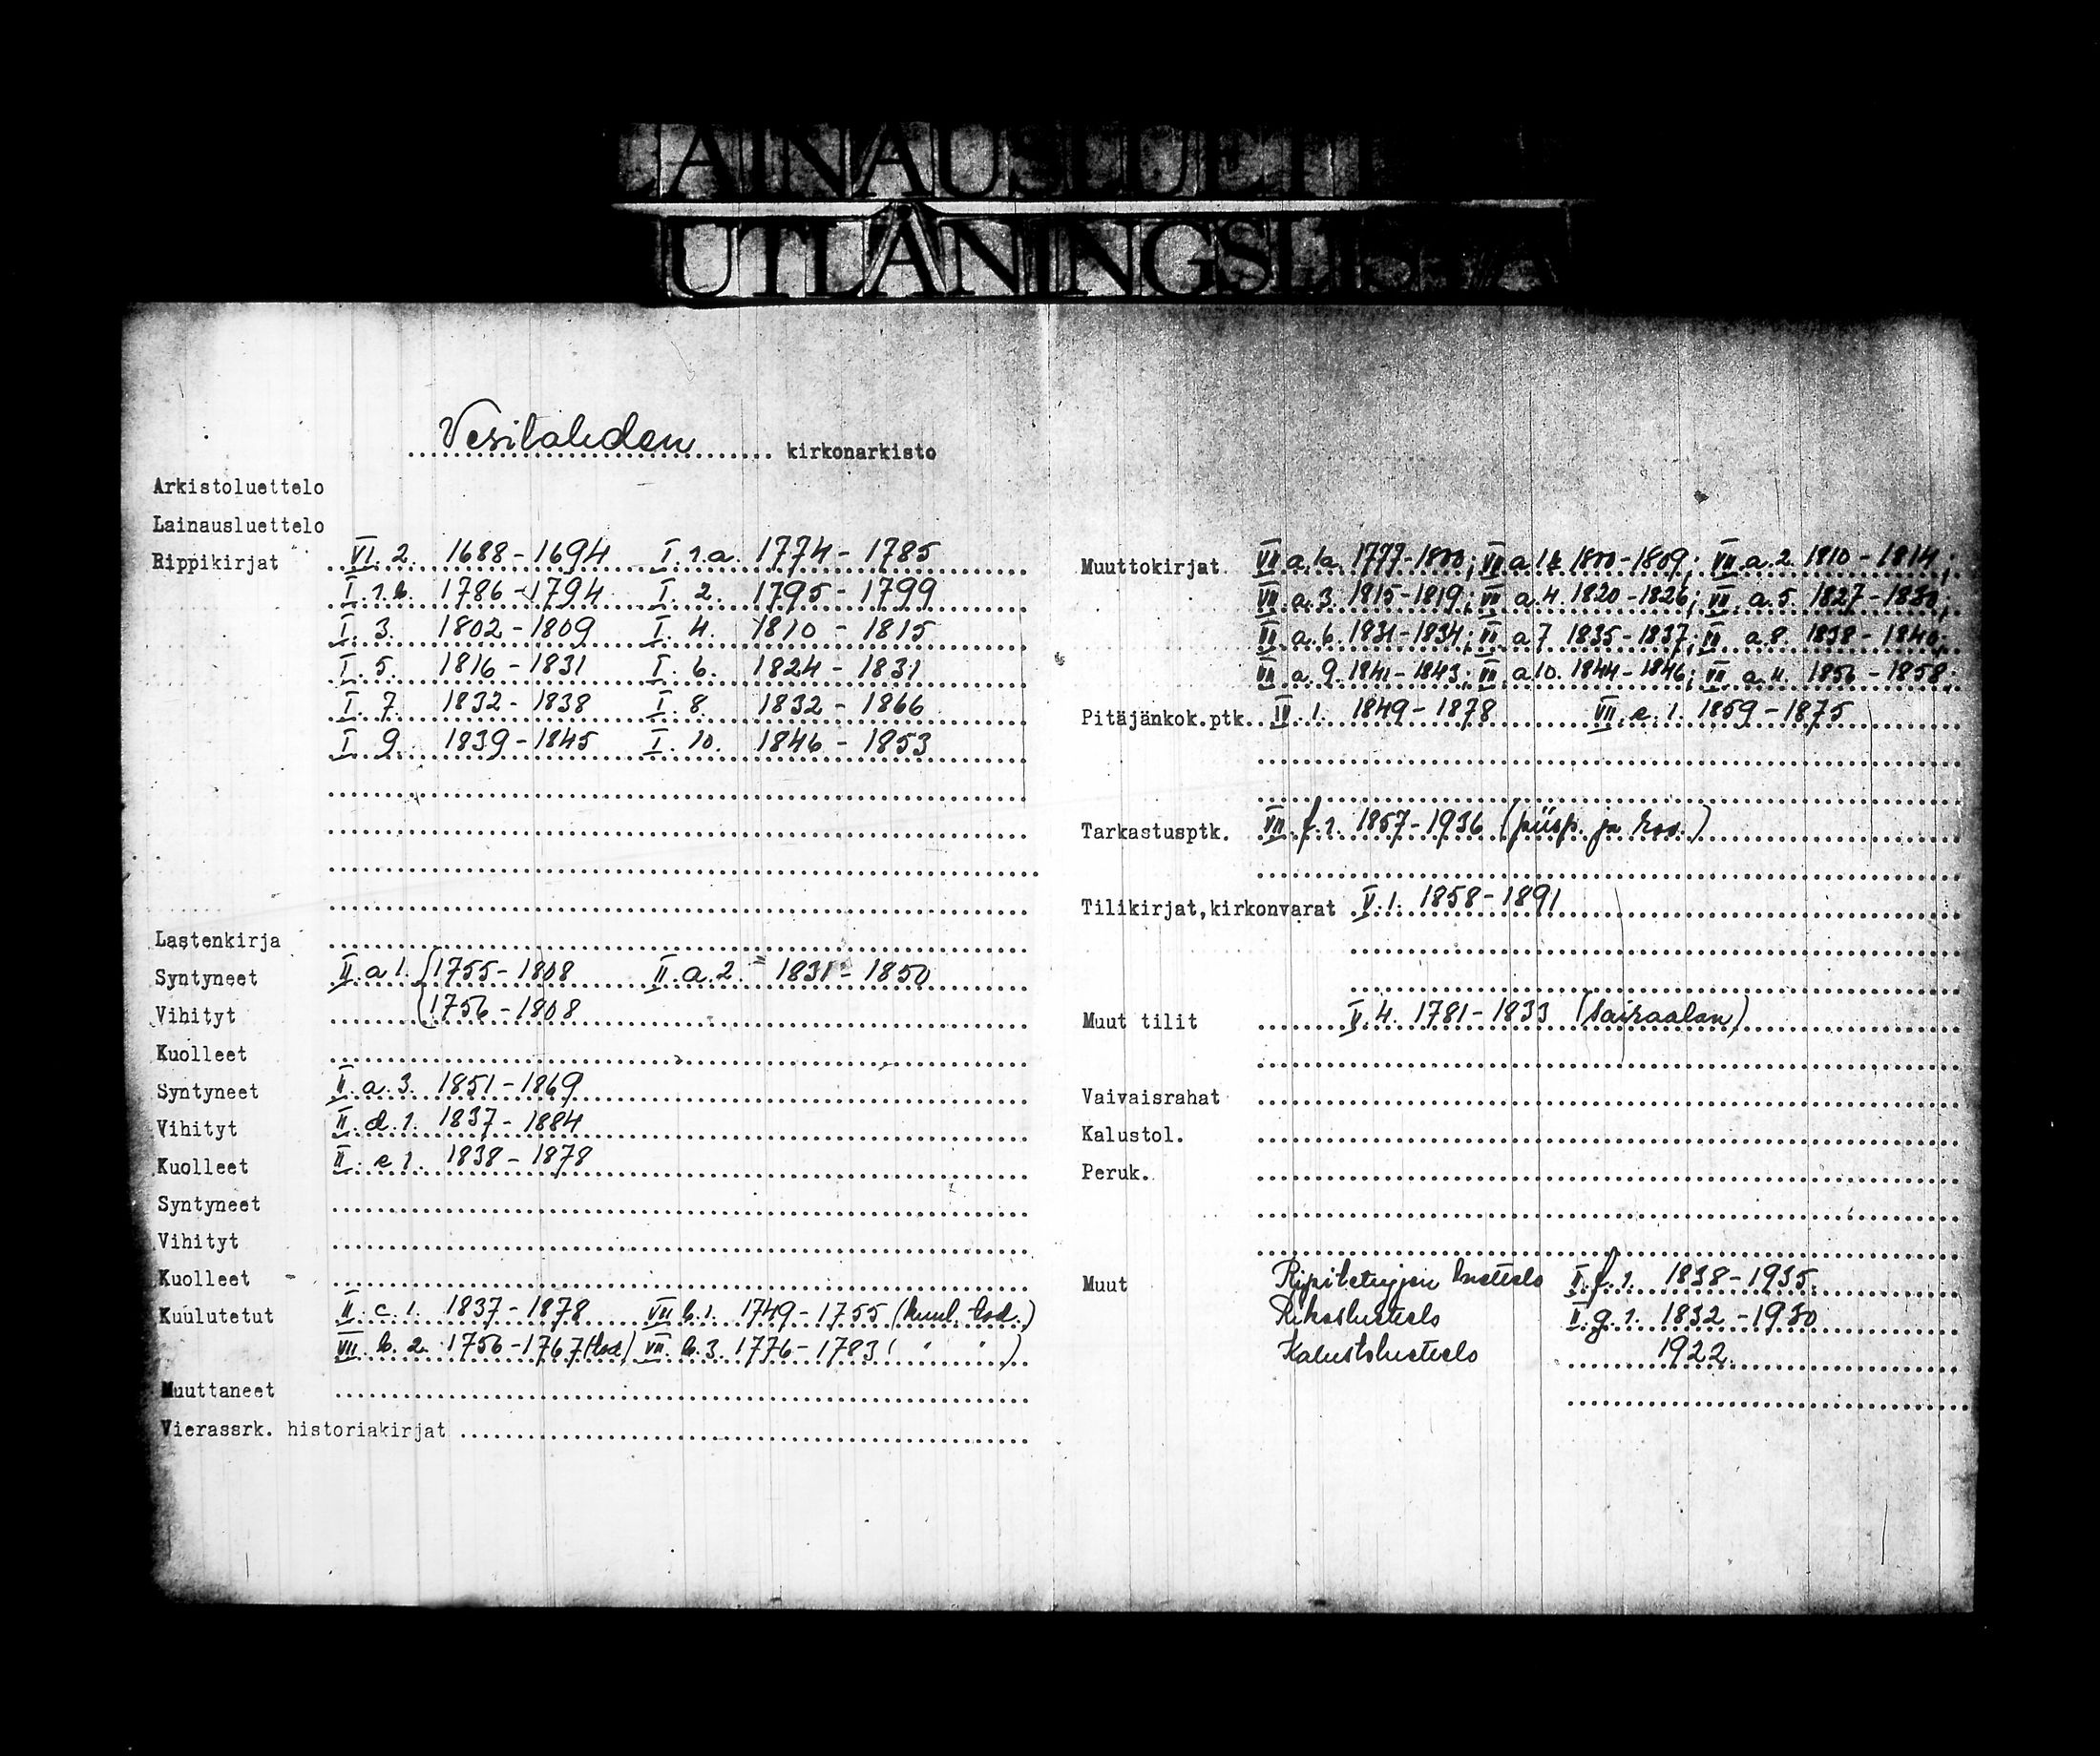 LAINAUSLUETT
UTLÅNINGSLISTA
Vesilahden kirkonarkisto
Arkistoluettelo
Lainausluettelo
Rippikirjat VI. 2. 1688-1694 I. 1.a. 1774-1785
I. 1.b. 1786-1794 I. 2. 1795-1799
I. 3. 1802-1809 I. 4. 1810-1815
I. 5. 1816-1831 I. 6. 1824-1831
I. 7. 1832-1838 I. 8. 1832-1866
I. 9. 1839-1845 I. 10. 1846-1853
Lastenkirja
Syntyneet II.a.1. {1755-1808 II.a.2. 1831-1850
Vihityt {1756-1808
Kuolleet
Syntyneet II.a.3. 1851-1869
Vihityt II.d.1. 1837-1884
Kuolleet II.e.1. 1838-1878
Syntyneet
Vihityt
Kuolleet
Kuulutetut II.c.1. 1837-1878 VII.b.1. 1749-1755 (kuul. tod.)
VII.b.2. 1756-1767 (tod) VII.b.3. 1776-1783 ( " " )
Muuttaneet
Vierassrk. historiakirjat
Muuttokirjat VII.a.1a. 1777-1800; VII a 1b 1800-1809; VII a.2. 1810-1814;
VII.a.3. 1815-1819; VII a.4. 1820-1826; VII. a.5. 1827-1830;
VII a.6. 1831-1834; VII a 7 1835-1837; VII a.8. 1838-1840;
VII a.9. 1841-1843; VII a 10. 1844-1846; VII a.11. 1856-1858;
Pitäjänkok.ptk. IV. 1. 1849-1878 VII.e.1. 1859-1875
Tarkastusptk. VII.f.1. 1857-1936 (piisp. ja rov.)
Tilikirjat,kirkonvarat V.1. 1858-1891
Muut tilit V.4. 1781-1833 (Sairaalan)
Vaivaisrahat
Kalustol.
Peruk.
Muut luettelo II.f.1. 1838-1935
II.g.1. 1832-1930
Kalustoluettelo 1922